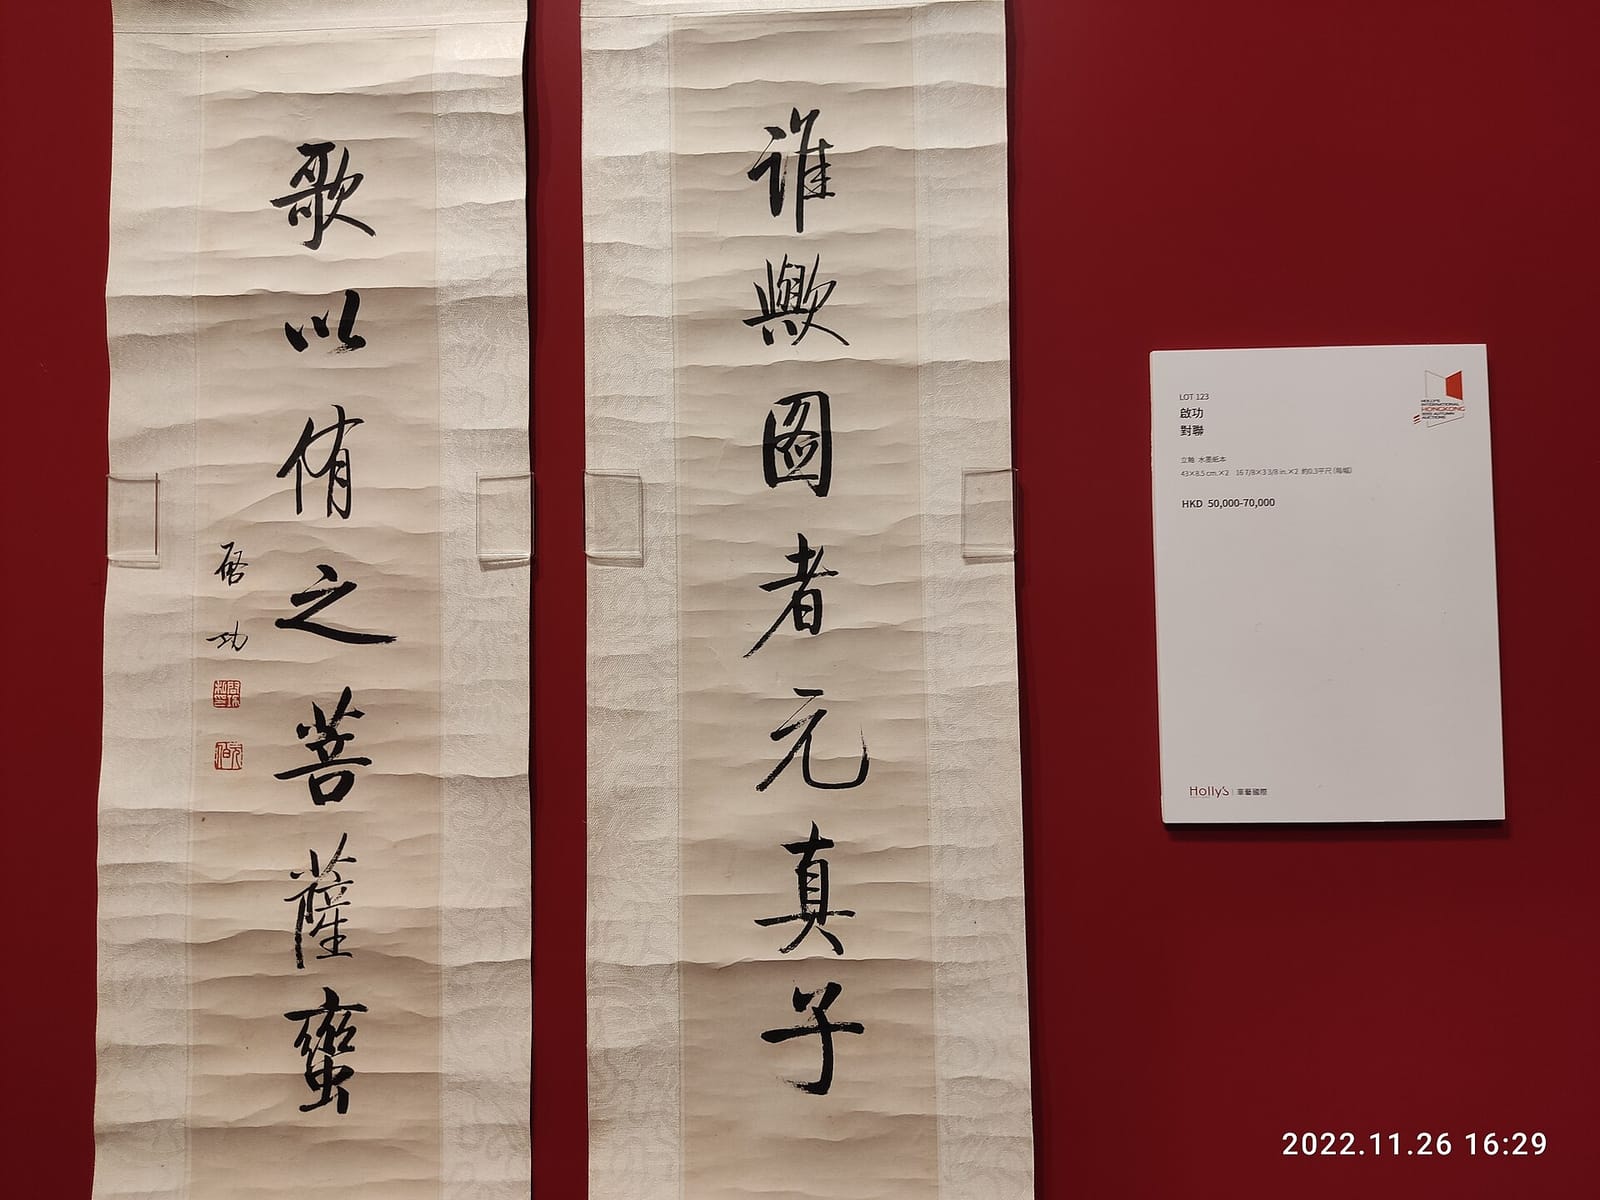 誰歟圖者元真子
歌以侑之菩薩蠻
啓功
LOT 123
啟功
對聯
立軸 水墨紙本
43×8.5 cm.×2 16 7/8×3 3/8 in.×2 約0.3平尺 (每幅)
HKD 50,000-70,000
HOLLY'S
INTERNATIONAL
HONGKONG
2022 AUTUMN
AUCTIONS
Holly's 華藝國際
2022.11.26 16:29